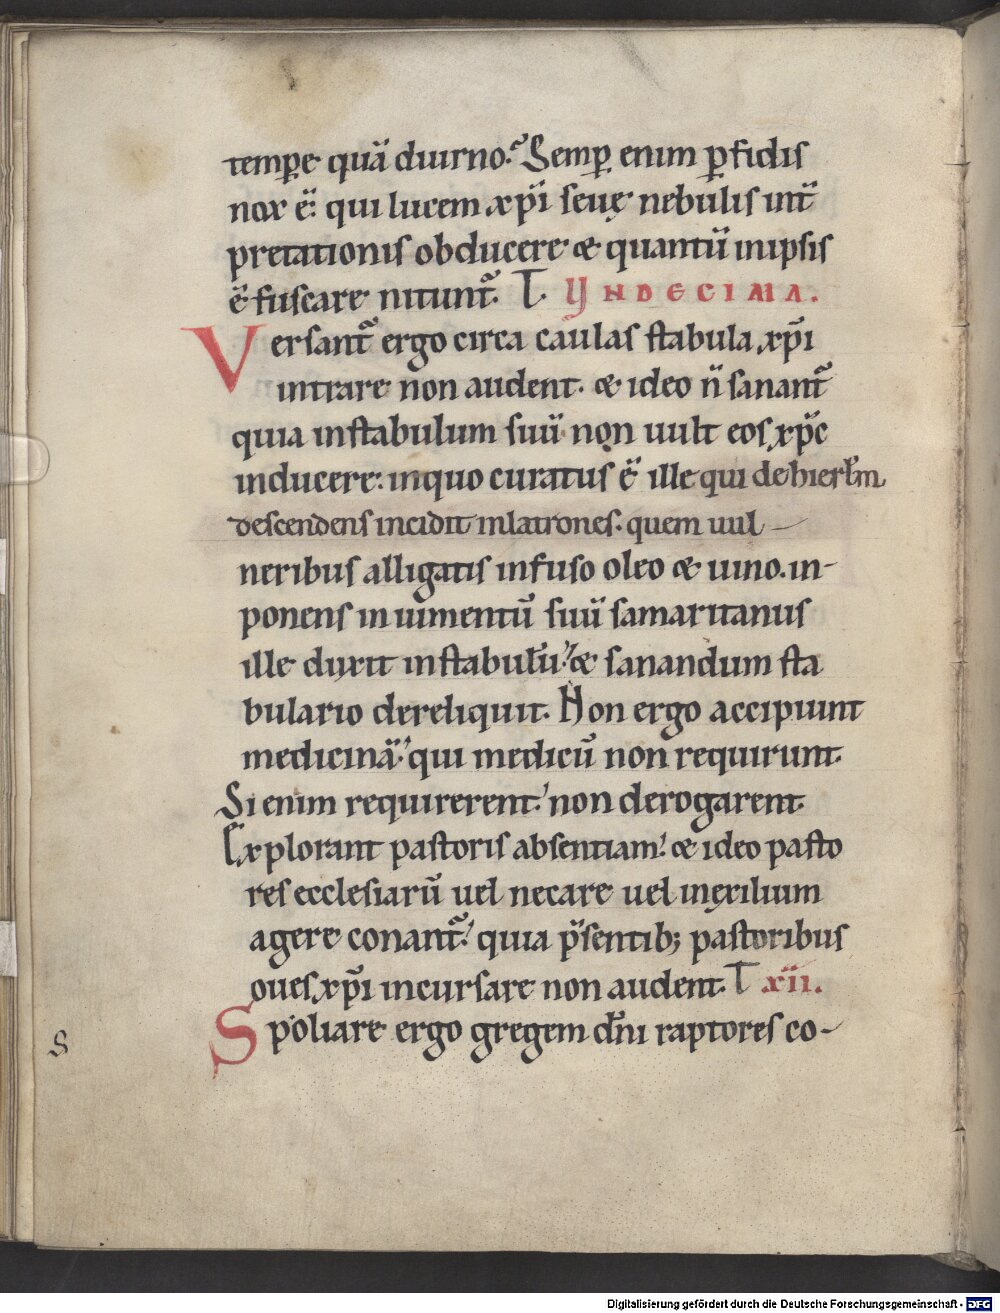 tempe̅ quā diurno. Semp̄ enim p̄fidis
nox ē. qui lucem xp̄i seuę nebulis int̄
pretationis obducere & quantū inipsis
ē fuscare nitunt̄. T. UNDECIMA.
Versant̄ ergo circa caulas stabula xp̄i
intrare non audent. & ideo n̄ sanant̄
quia instabulum suū non uult eos xp̄c
inducere. inquo curatus ē ille qui dehierl̄m
descendens incidit inlatrones. quem uul-
neribus alligatis infuso oleo & uino. in-
ponens in uimentū suū samaritanus
ille duxit instabulū. & sanandum sta
bulario dereliquit. Non ergo accipiunt
medicinā. qui medicū non requirunt.
Si enim requirerent. non derogarent.
Explorant pastoris absentiam. & ideo pasto
res ecclesiarū uel necare uel inexilium
agere conant̄. quia p̄sentib; pastoribus
oues xp̄i incursare non audent. T xii.
Spoliare ergo gregem dn̄i raptores co-
S
Digitalisierung gefördert durch die Deutsche Forschungsgemeinschaft - DFG